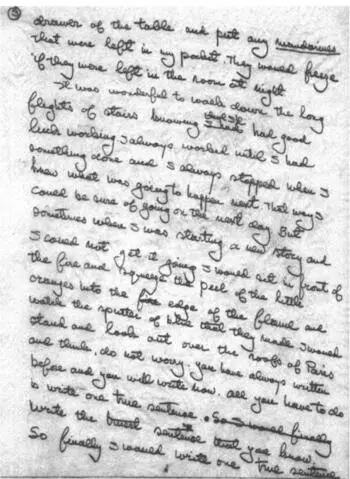 ③
drawer of the table and put any mandarines
that were left in my pocket. They would freeze
if they were left in the room at night
It was wonderful to walk down the long
flights of stairs knowing that I had good
luck working. I always worked until I had
something done and I always stopped when I
knew what was going to happen next. That way I
could be sure of going on the next day. But
sometimes when I was starting a new story and
I could not get it going I would sit in front of
the fire and squeeze the peel of the little
oranges into the edge of the flame and
watch the sputter of blue that they made. I would
stand and look out over the roofs of Paris
and think, do not worry. you have always written
before and you will write now. all you have to do
is write one true sentence. So I would finally
write the truest sentence that you know.
So finally I would write one true sentence